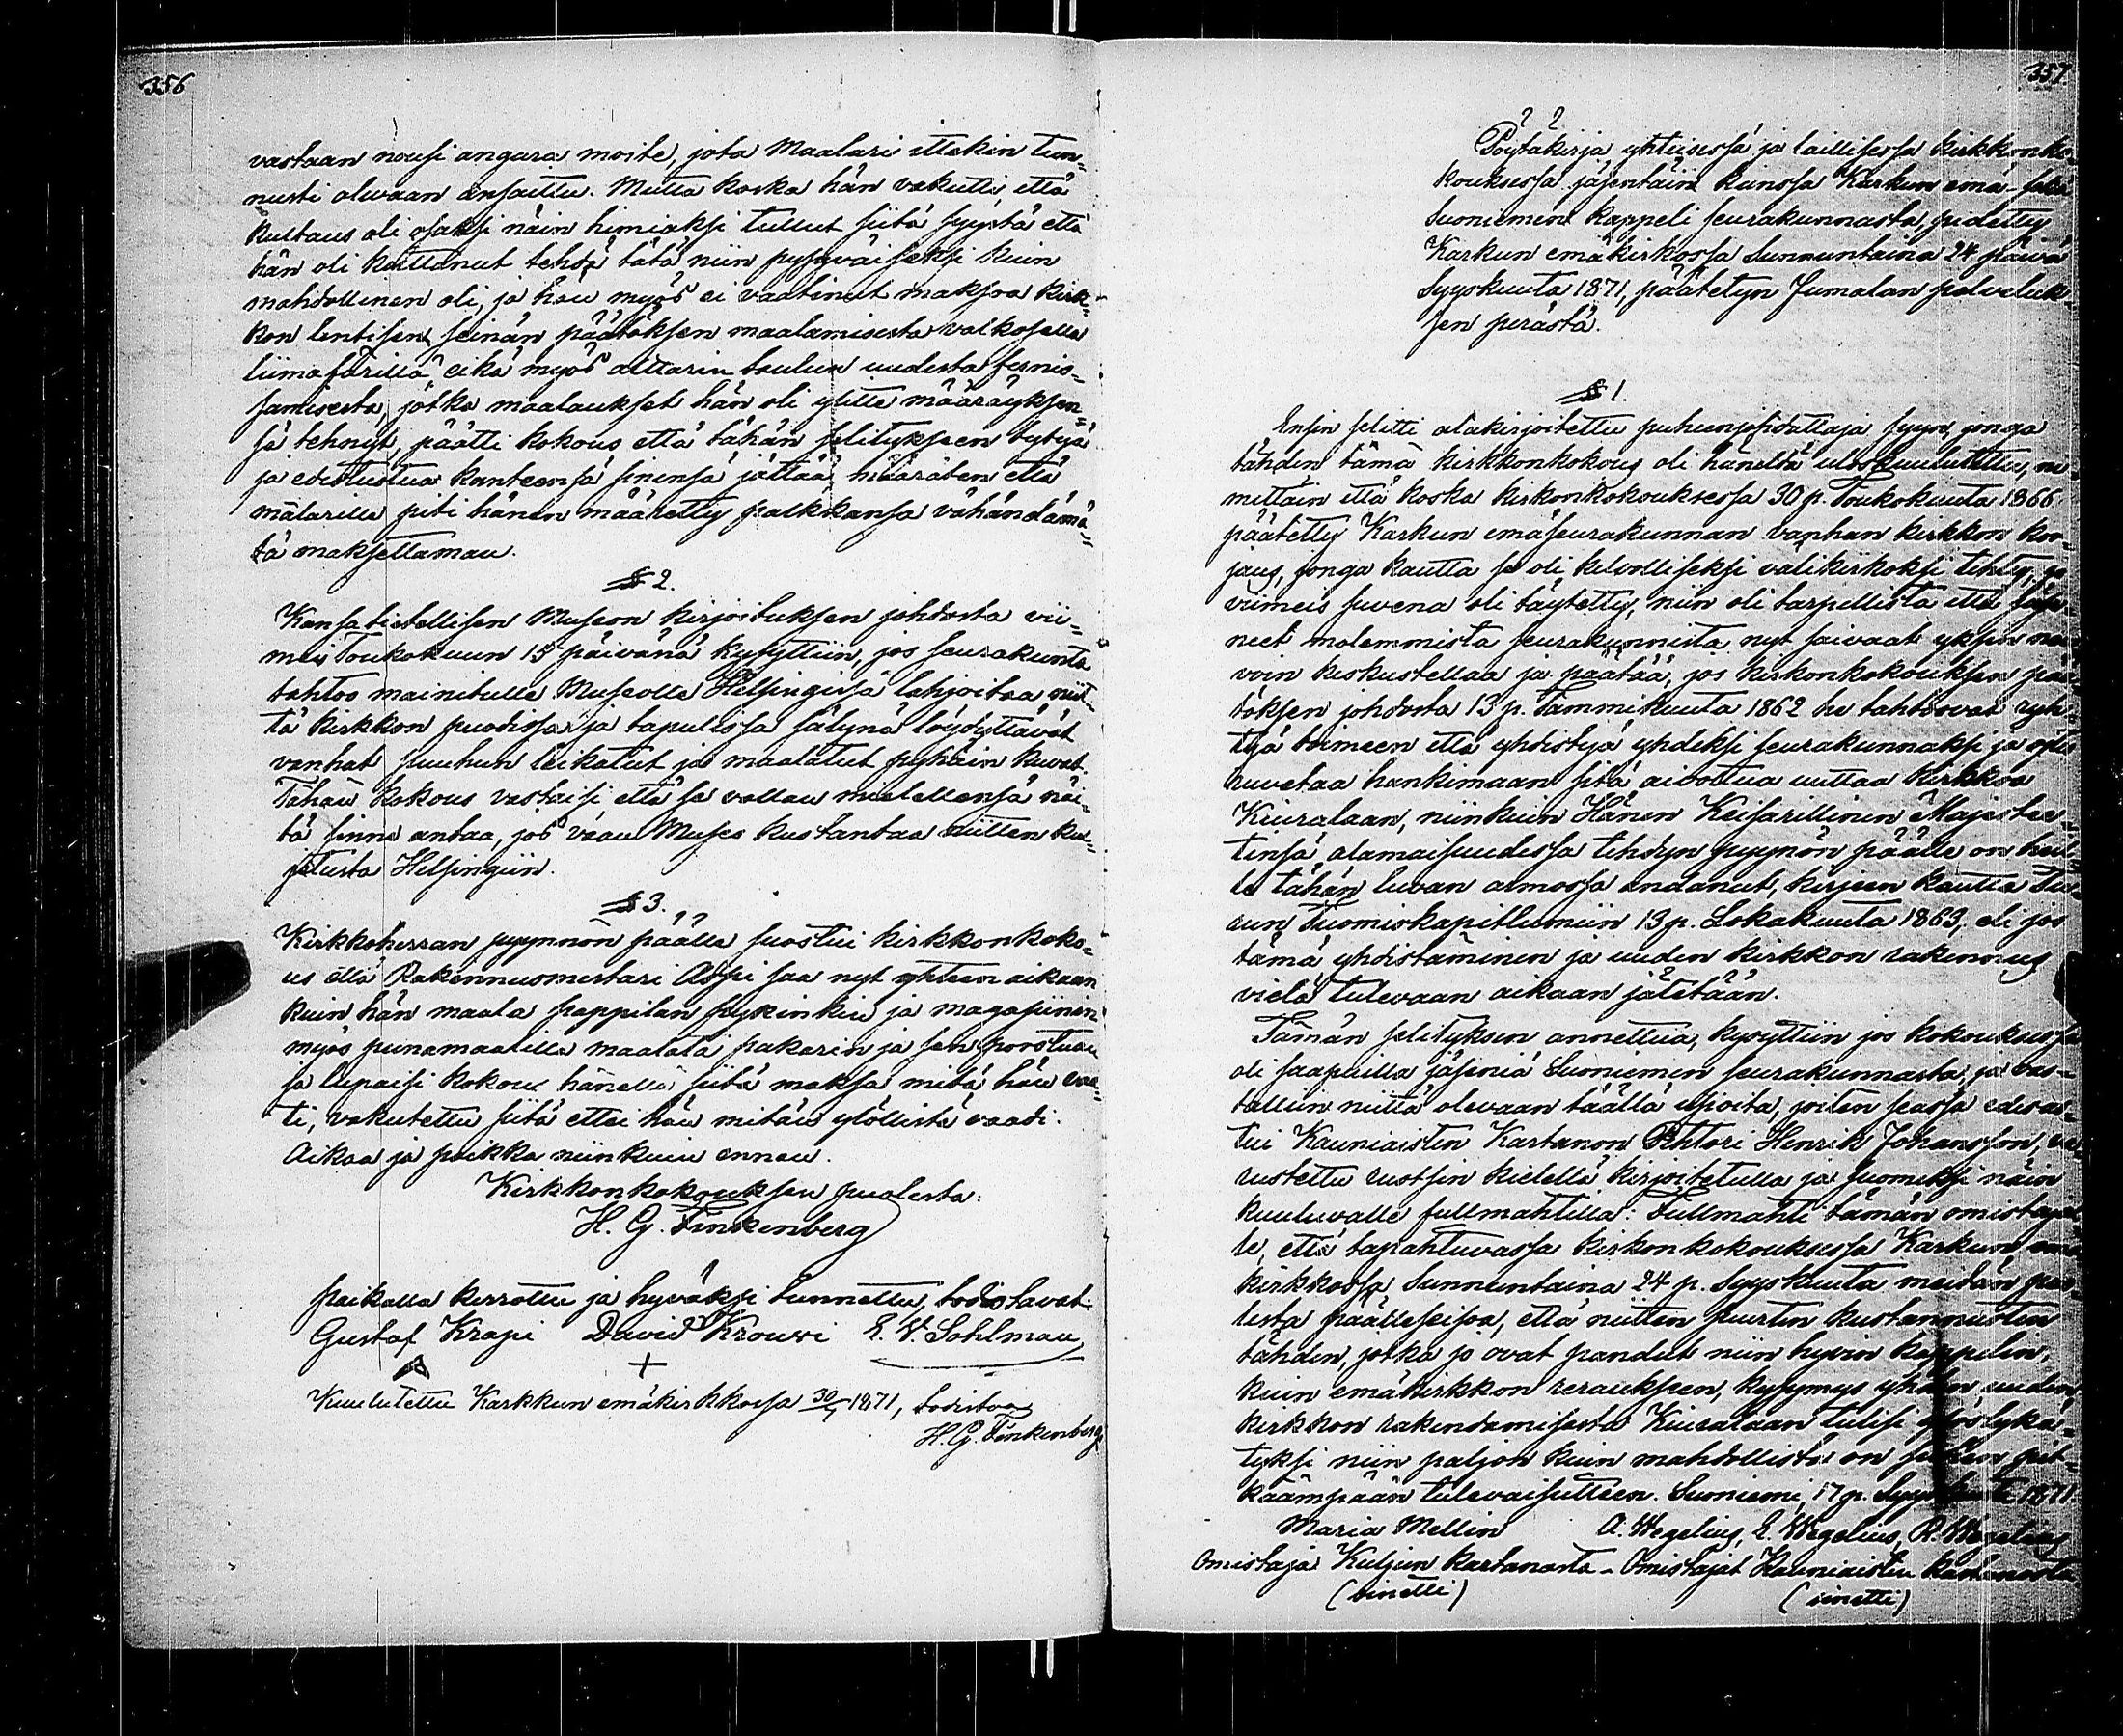 356
vastaan nousi angara moite, jota Maalari ittekin tun-
nusti olevaan ansaittu. Mutta koska hän vakutti, että
kustaus oli osaksi näin himiäksi tullut siitä syystä että
hän oli koittanut tehdä tätä niin pysyväiseksi kuin
mahdollinen oli, ja hän myös ei vaatinut maksoa kirk-
kon lentisen seinän päätöksen maalamisesta valkosella
liimafärillä eikä myös alttarin taulun uudesta fernis-
samisesta, jotka maalaukset hän oli ylitte määräyksen-
sä tehnyt, päätti kokous että tähän selitykseen tytyä
ja edistuotua kanteensä sinensä jättää, määräten että
mälarilla piti hänen määretty palkkansa vähändämä-
tä maksettaman.
§ 2.
Kansatietellisen Museon kirjoituksen johdosta vii-
meis Toukokuun 15 päivänä kysyttiin, jos seurakunta
tahtoo mainitulle Museolle Helsingissä lahjoitaa niit-
tä kirkkon puodissa ja tapulissa sälynä löydyttävät
vanhat puuhun leikatut ja maalatut pyhäin kuvat.
Tähän kokous vastaisi että se vallan mielellensä näi-
tä sinne antaa, jos vaan Museo kustantaa niitten kul-
jetusta Helsingiin.
§ 3.
Kirkkoherran pyynnön päälle suostui kirkkonkoko-
us että Rakennuomestari Aspi saa nyt yhteen aikaan
kuin hän maala pappilan sykinkiu ja magasiinin
myös punamaalilla maalata pakarin ja sen porstuan
ja lupaisi kokous hänellä siitä maksa mitä hän vaa-
ti, vakutettu siitä ettei hän mitän ylöllistä vaadi.
Aikaa ja paikka niinkuin ennen.
Kirkkonkokouksen puolesta:
H. G. Finkenberg
paikalla kerrottu ja hyväksi tunnettu, todistavat:
Gustaf Krapi David Krouvi E. W. Sohlman
+
Kuulutettu Karkkun emäkirkkossa 1871, todistaa
H. G. Finkenberg
357
Pöytäkirja yhteisessä ja laillisessa kirkkonko-
kouksessa jäsentäin kanssa Karkun emä- sekä
Suoniemen kappeli seurakunnasta, pidetty
Karkun emäkirkossa Sunnuntaina 24 päivä
Syyskuuta 1871, päätetyn Jumalan palveluk-
sen perästä.
§ 1.
Ensin selitti alakirjoitettu puheenjohdattaja syyn, jonga
tähden tämä kirkkonkokous oli häneltä uloskuulutettu, ni-
mittäin että koska kirkonkokouksessa 30 p. Toukokuuta 1866
päätetty Karkun emäseurakunnan vanhan kirkkon kor-
jaus, jonga kautta se oli kelvolliseksi välikirkoksi tehty, ja
viimeis suvena oli täytetty, niin oli tarpellista että jäse-
neet molemmista seurakunnista nyt saivaat yksin neu-
voin keskustellaa ja päätää, jos kirkonkokouksen pää-
töksen johdosta 13 p. Tammikuuta 1862 he tahtovat ryh-
tyä toimeen että yhdistyä yhdeksi seurakunnaksi ja
ruvetaa hankimaan sitä aivottua uuttaa kirkkoa
Kiuralaan, niinkuin Hänen Keisarillinen Majestee-
tinsä alamaisuudessa tehdyn pyynön päälle on heil-
le tähän luvan armossa andanut, kirjeen kautta Tu-
run Tuomiokapitlumiin 13 p. Lokakuuta 1863, eli jos
tämä yhdistäminen ja uuden kirkkon rakennus
vielä tulevaan aikaan jätetään.
Tämän selityksen annettua, kysyttiin jos kokouksessa
oli saapuilla jäseniä Suoniemen seurakunnasta, ja vas-
tattiin niittä olevaan täällä usioita, joiten seassa edesas-
tui Kauniaisten Kartanon Rhtori Henrik Johansson, va-
rustettu rustsin kielellä kirjoitetulla ja suomeksi näin
kuuluvalle fullmahtilla: Fullmahti tämän omistajal-
le, että tapahtuvassa kirkonkokouksessa Karkun emä-
kirkkossa Sunnuntaina 24 p. Syyskuuta meidän puo-
lesta päälleseisoa, että niitten suurten kustannusten
tähden, jotka jo ovat pandut niin hyvin kappelin,
kuin emäkirkkon reraukseen, kysymys yhden uuden
kirkkon rakendamisesta Kiuralaan tulisi ylöslykä-
tyksi niin paljon kuin mahdollista on siihen pit-
käämpään tulevaisutteen. Suoniemi, 17 p. Syyskuuta 1871.
Maria Mellin A. Wegelius, E. Wegelius, R. Wegelius
Omistaja Kuljun Kartanosta - Omistajat Kauniaisten Kartanosta
(sinetti) (sinetti)